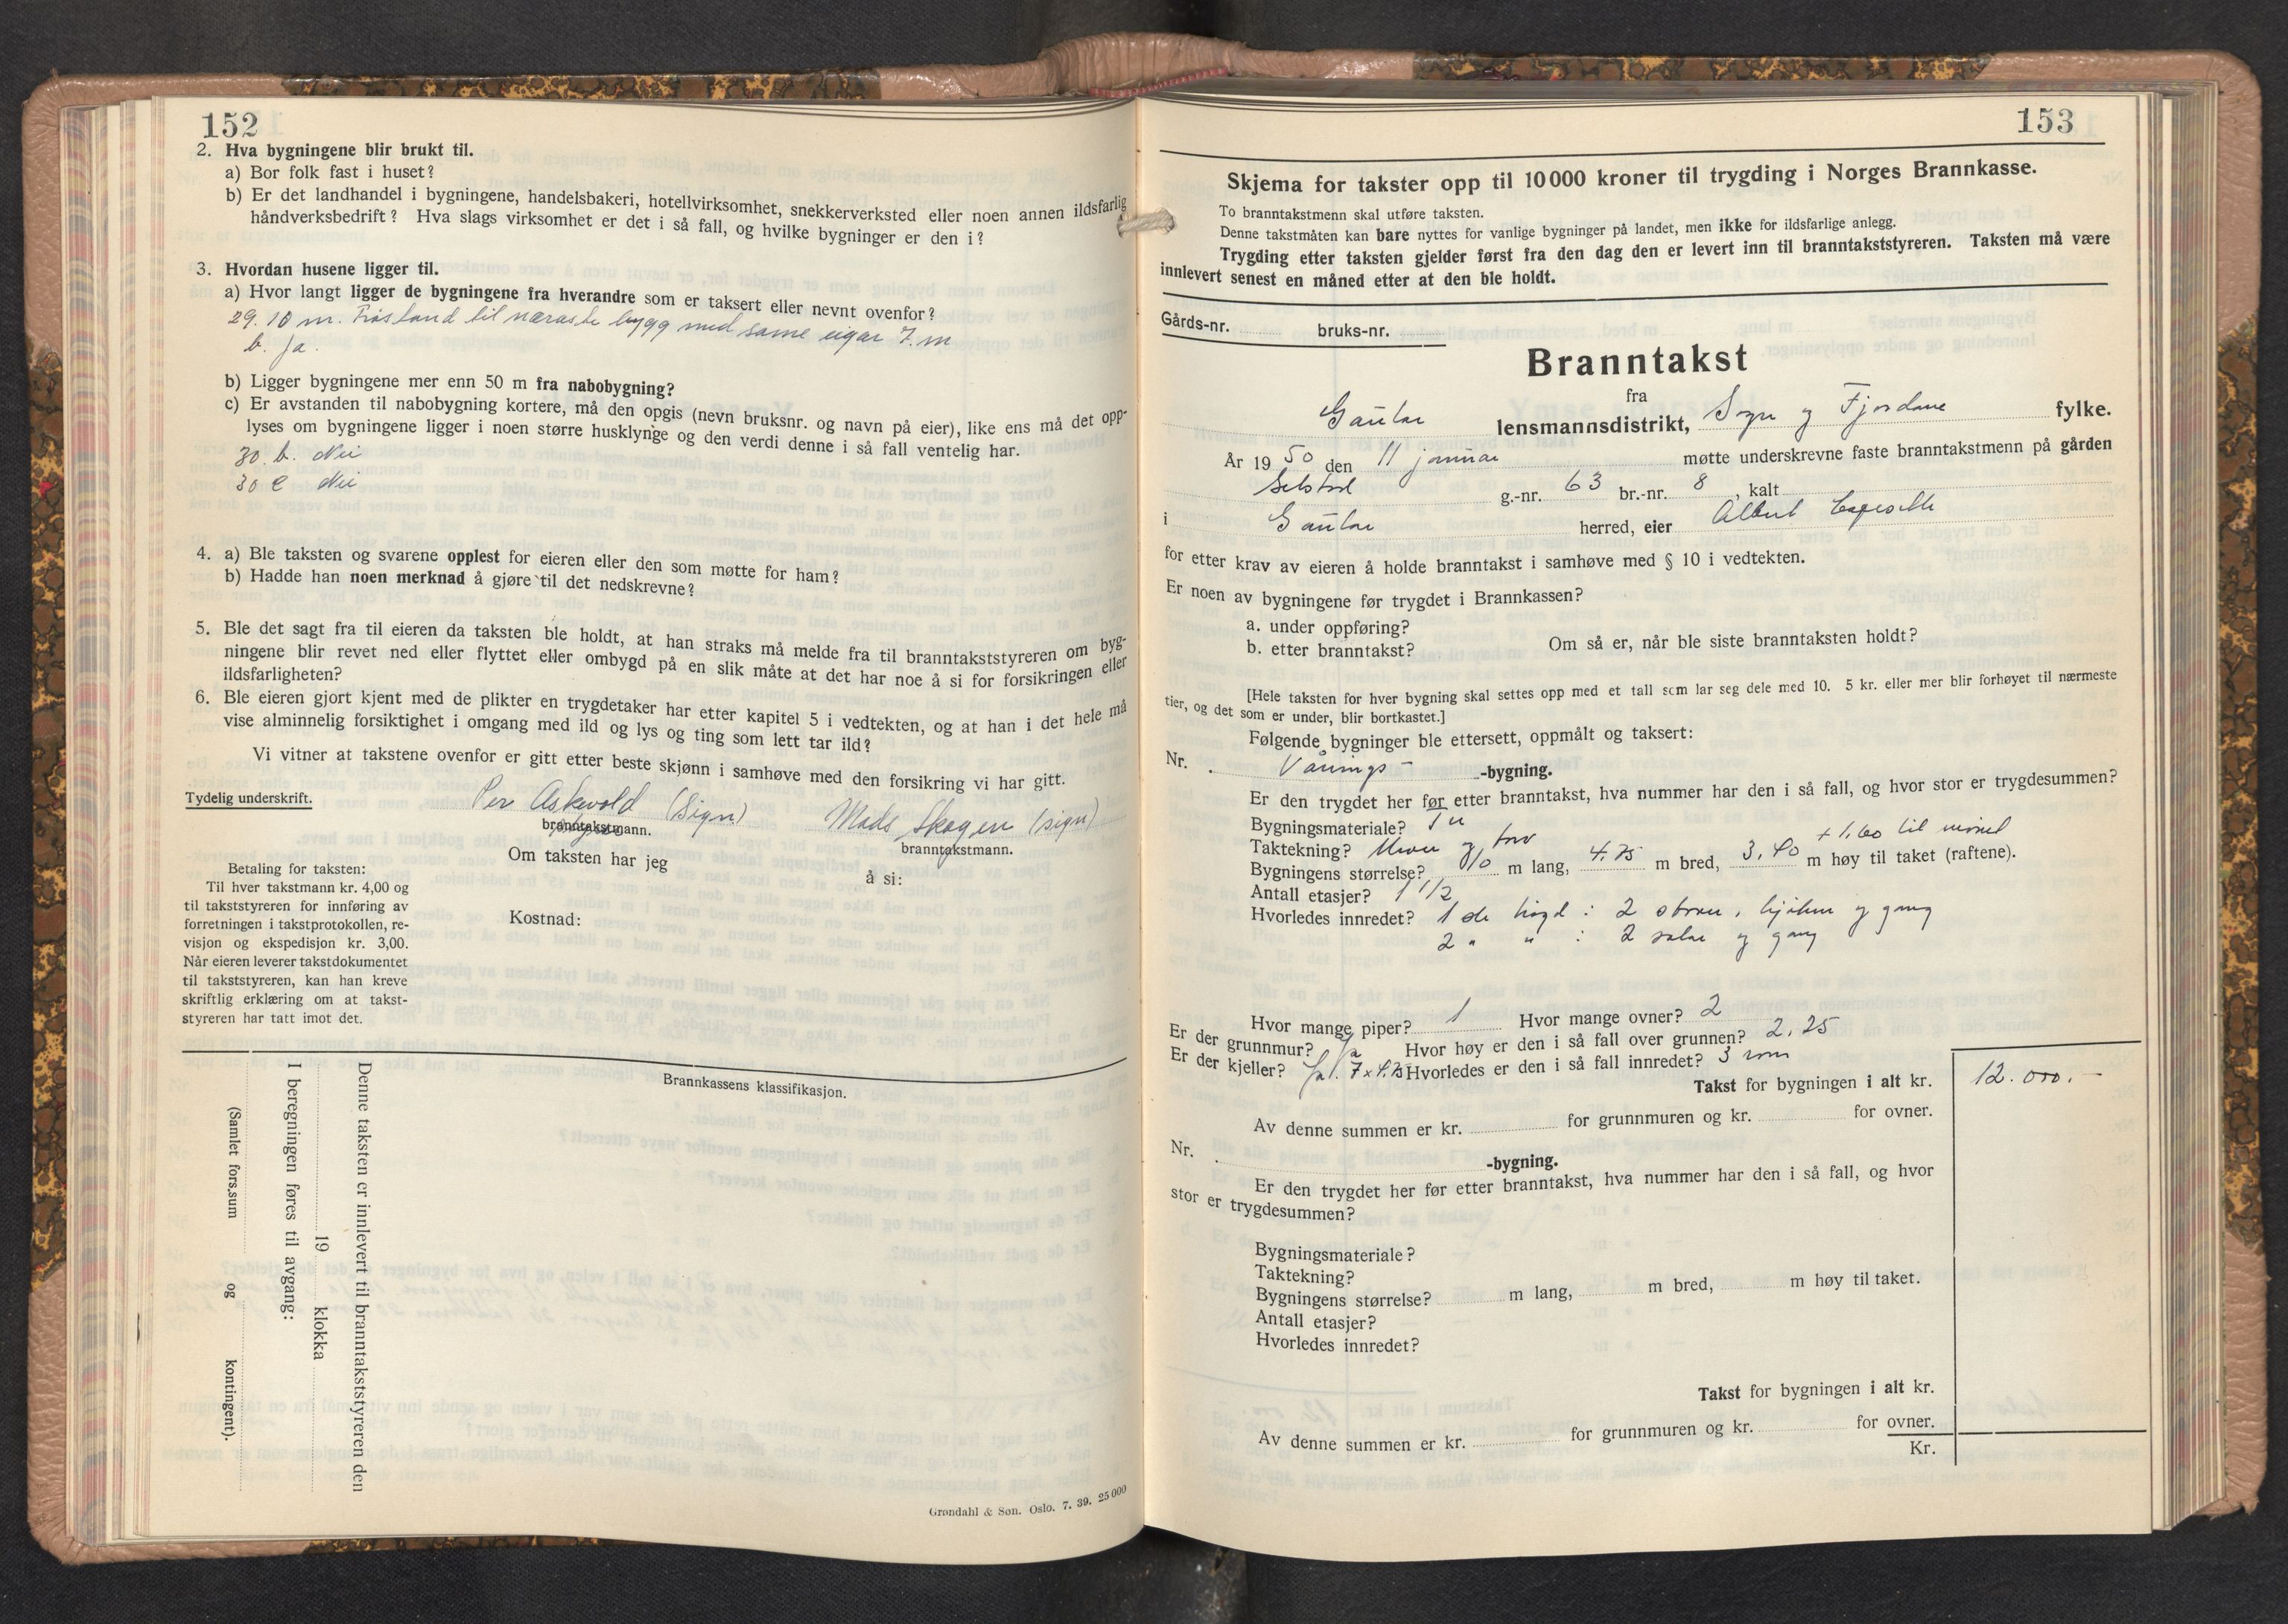 152
2. Hva bygningene blir brukt til.
a) Bor folk fast i huset?
b) Er det landhandel i bygningene, handelsbakeri, hotellvirksomhet, snekkerverksted eller noen annen ildsfarlig
håndverksbedrift? Hva slags virksomhet er det i så fall, og hvilke bygninger er den i?
3. Hvordan husene ligger til.
a) Hvor langt ligger de bygningene fra hverandre som er taksert eller nevnt ovenfor?
29. 10 m. Fråstand til næraste bygg med same eigar 7. m
b. Ja.
b) Ligger bygningene mer enn 50 m fra nabobygning?
c) Er avstanden til nabobygning kortere, må den opgis (nevn bruksnr. og navn på eier), like ens må det opp-
lyses om bygningene ligger i noen større husklynge og den verdi denne i så fall ventelig har.
30. b. Nei
30 c Nei
4. a) Ble taksten og svarene opplest for eieren eller den som møtte for ham?
b) Hadde han noen merknad å gjøre til det nedskrevne?
5. Ble det sagt fra til eieren da taksten ble holdt, at han straks må melde fra til branntakststyreren om byg-
ningene blir revet ned eller flyttet eller ombygd på en slik måte at det har noe å si for forsikringen eller
ildsfarligheten?
6. Ble eieren gjort kjent med de plikter en trygdetaker har etter kapitel 5 i vedtekten, og at han i det hele må
vise alminnelig forsiktighet i omgang med ild og lys og ting som lett tar ild?
Vi vitner at takstene ovenfor er gitt etter beste skjønn i samhøve med den forsikring vi har gitt.
Tydelig underskrift.
Per Askvold (Sign) Mads Skogen (sign)
branntakstmann. branntakstmann.
Om taksten har jeg å si:
Kostnad:
Betaling for taksten:
Til hver takstmann kr. 4,00 og
til takststyreren for innføring av
forretningen i takstprotokollen, re-
visjon og ekspedisjon kr. 3,00.
Når eieren leverer takstdokumentet
til takststyreren, kan han kreve
skriftlig erklæring om at takst-
styreren har tatt imot det.
Brannkassens klassifikasjon.
Denne taksten er innlevert til branntakststyreren den
19 klokka
I beregningen føres til avgang:
(Samlet fors.sum og kontingent).
Grøndahl & Søn. Oslo. 7. 39. 25 000
153
Skjema for takster opp til 10 000 kroner til trygding i Norges Brannkasse.
To branntakstmenn skal utføre taksten.
Denne takstmåten kan bare nyttes for vanlige bygninger på landet, men ikke for ildsfarlige anlegg.
Trygding etter taksten gjelder først fra den dag den er levert inn til branntakststyreren. Taksten må være
innlevert senest en måned etter at den ble holdt.
Gårds-nr. bruks-nr.
Branntakst
fra
Gaular lensmannsdistrikt, Sogn og Fjordane fylke.
År 1950 den 11 januar møtte underskrevne faste branntakstmenn på gården
g.-nr. 63 br.-nr. 8, kalt
i Gaular herred, eier Albert
for etter krav av eieren å holde branntakst i samhøve med § 10 i vedtekten.
Er noen av bygningene før trygdet i Brannkassen?
a. under oppføring?
b. etter branntakst? Om så er, når ble siste branntaksten holdt?
[Hele taksten for hver bygning skal settes opp med et tall som lar seg dele med 10. 5 kr. eller mer blir forhøyet til nærmeste
tier, og det som er under, blir bortkastet.]
Følgende bygninger ble ettersett, oppmålt og taksert:
Nr. Vånings-bygning.
Er den trygdet her før etter branntakst, hva nummer har den i så fall, og hvor stor er trygdesummen?
Bygningsmateriale? Tre
Taktekning? og torv + 1,60 til
Bygningens størrelse? 8,10 m lang, 4.75 m bred, 3,40 m høy til taket (raftene).
Antall etasjer? 1 1/2
Hvorledes innredet? 1 ste høgd: 2 stover, kjøken og gang
2 " " : 2 salar og gang
Hvor mange piper? 1 Hvor mange ovner? 2
Er der grunnmur? Ja Hvor høy er den i så fall over grunnen? 2.25
Er der kjeller? Ja. 7 x 4.75 Hvorledes er den i så fall innredet? 3 rom
Takst for bygningen i alt kr. 12.000.-
Av denne summen er kr. for grunnmuren og kr. for ovner.
Nr. -bygning.
Er den trygdet her før etter branntakst, hva nummer har den i så fall, og hvor
stor er trygdesummen?
Bygningsmateriale?
Taktekning?
Bygningens størrelse? m lang, m bred, m høy til taket.
Antall etasjer?
Hvorledes innredet?
Takst for bygningen i alt kr.
Av denne summen er kr. for grunnmuren og kr. for ovner.
Kr.